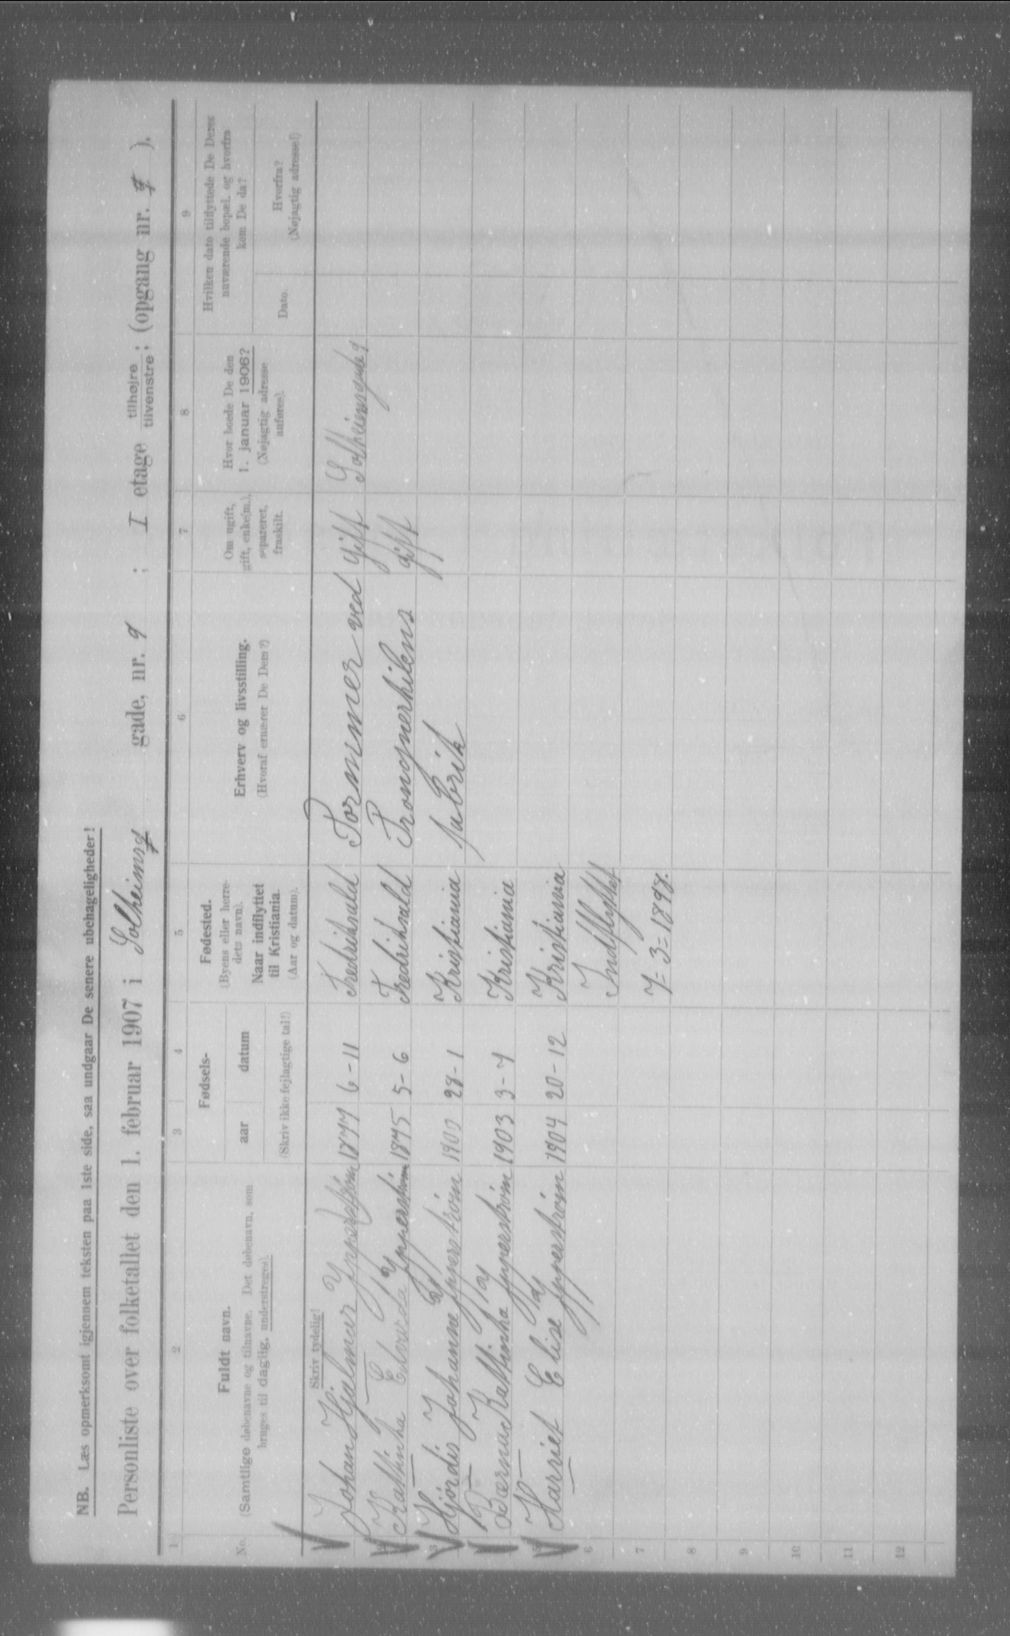 NB. Læs opmerksomt igjennem teksten paa 1ste side, saa undgaar De senere ubehageligheder!
Personliste over folketallet den 1. februar 1907 i Solheimsg gade, nr. 9 ; I etage tilhøjre tilvenstre ; (opgang nr. ).
1 2 3 4 5 6 7 8 9
No.
Fuldt navn.
(Samtlige døbenavne og tilnavne. Det døbenavn, som
bruges til dagtig, understreges).
Fødsels-
aar datum
(Skriv ikke fejlagtige tal!)
Fødested.
(Byens eller herre-
dets navn).
Naar indflyttet
til Kristiania.
(Aar og datum).
Erhverv og livsstilling.
(Hvoraf ernærer De Dem?)
Om ugift,
gift, enke(m.),
separeret,
fraskilt.
Hvor boede De den
1. januar 1906?
(Nøjagtig adresse
anføres).
Hvilken dato tilflyttede De Deres
nuværende bopæl, og hvorfra
kom De da?
Dato.
Hvorfra?
(Nøjagtig adresse!)
Skriv tydelig!
Johan Hjalmer 1877 6-11 Fredrikshald Formmer ved gift
Kathinka 1875 5-6 Fredrikshald gift
3 Hjørdis Johanne 1900 28-1 Kristiania fabrik
Kathinka 1903 3-7 Kristiania
Harriet Elise 1904 20-12 Kristiania
6 Indflyttet
7 7-3-1898.
8
9
10
11
12